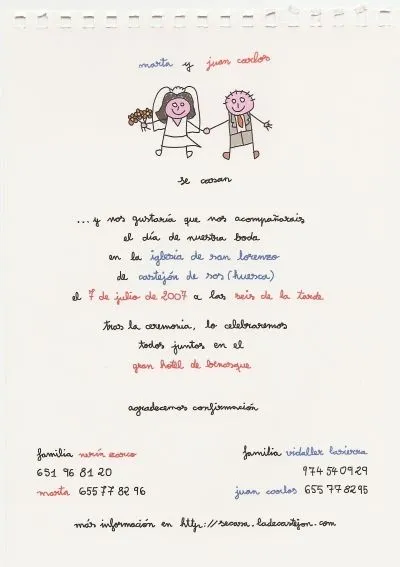 marta y juan carlos
se casan
...y nos gustaría que nos acompañarais
el día de nuestra boda
en la iglesia de san lorenzo
de castejón de sos (huesca)
el 7 de julio de 2007 a las seis de la tarde
tras la ceremonia, lo celebraremos
todos juntos en el
gran hotel de benasque
agradecemos confirmación
familia nerín zarco
651 96 81 20
marta 655 77 82 96
familia vidaller lasierra
974 54 09 29
juan carlos 655 77 82 95
más información en http://secasa.ladecastejon.com